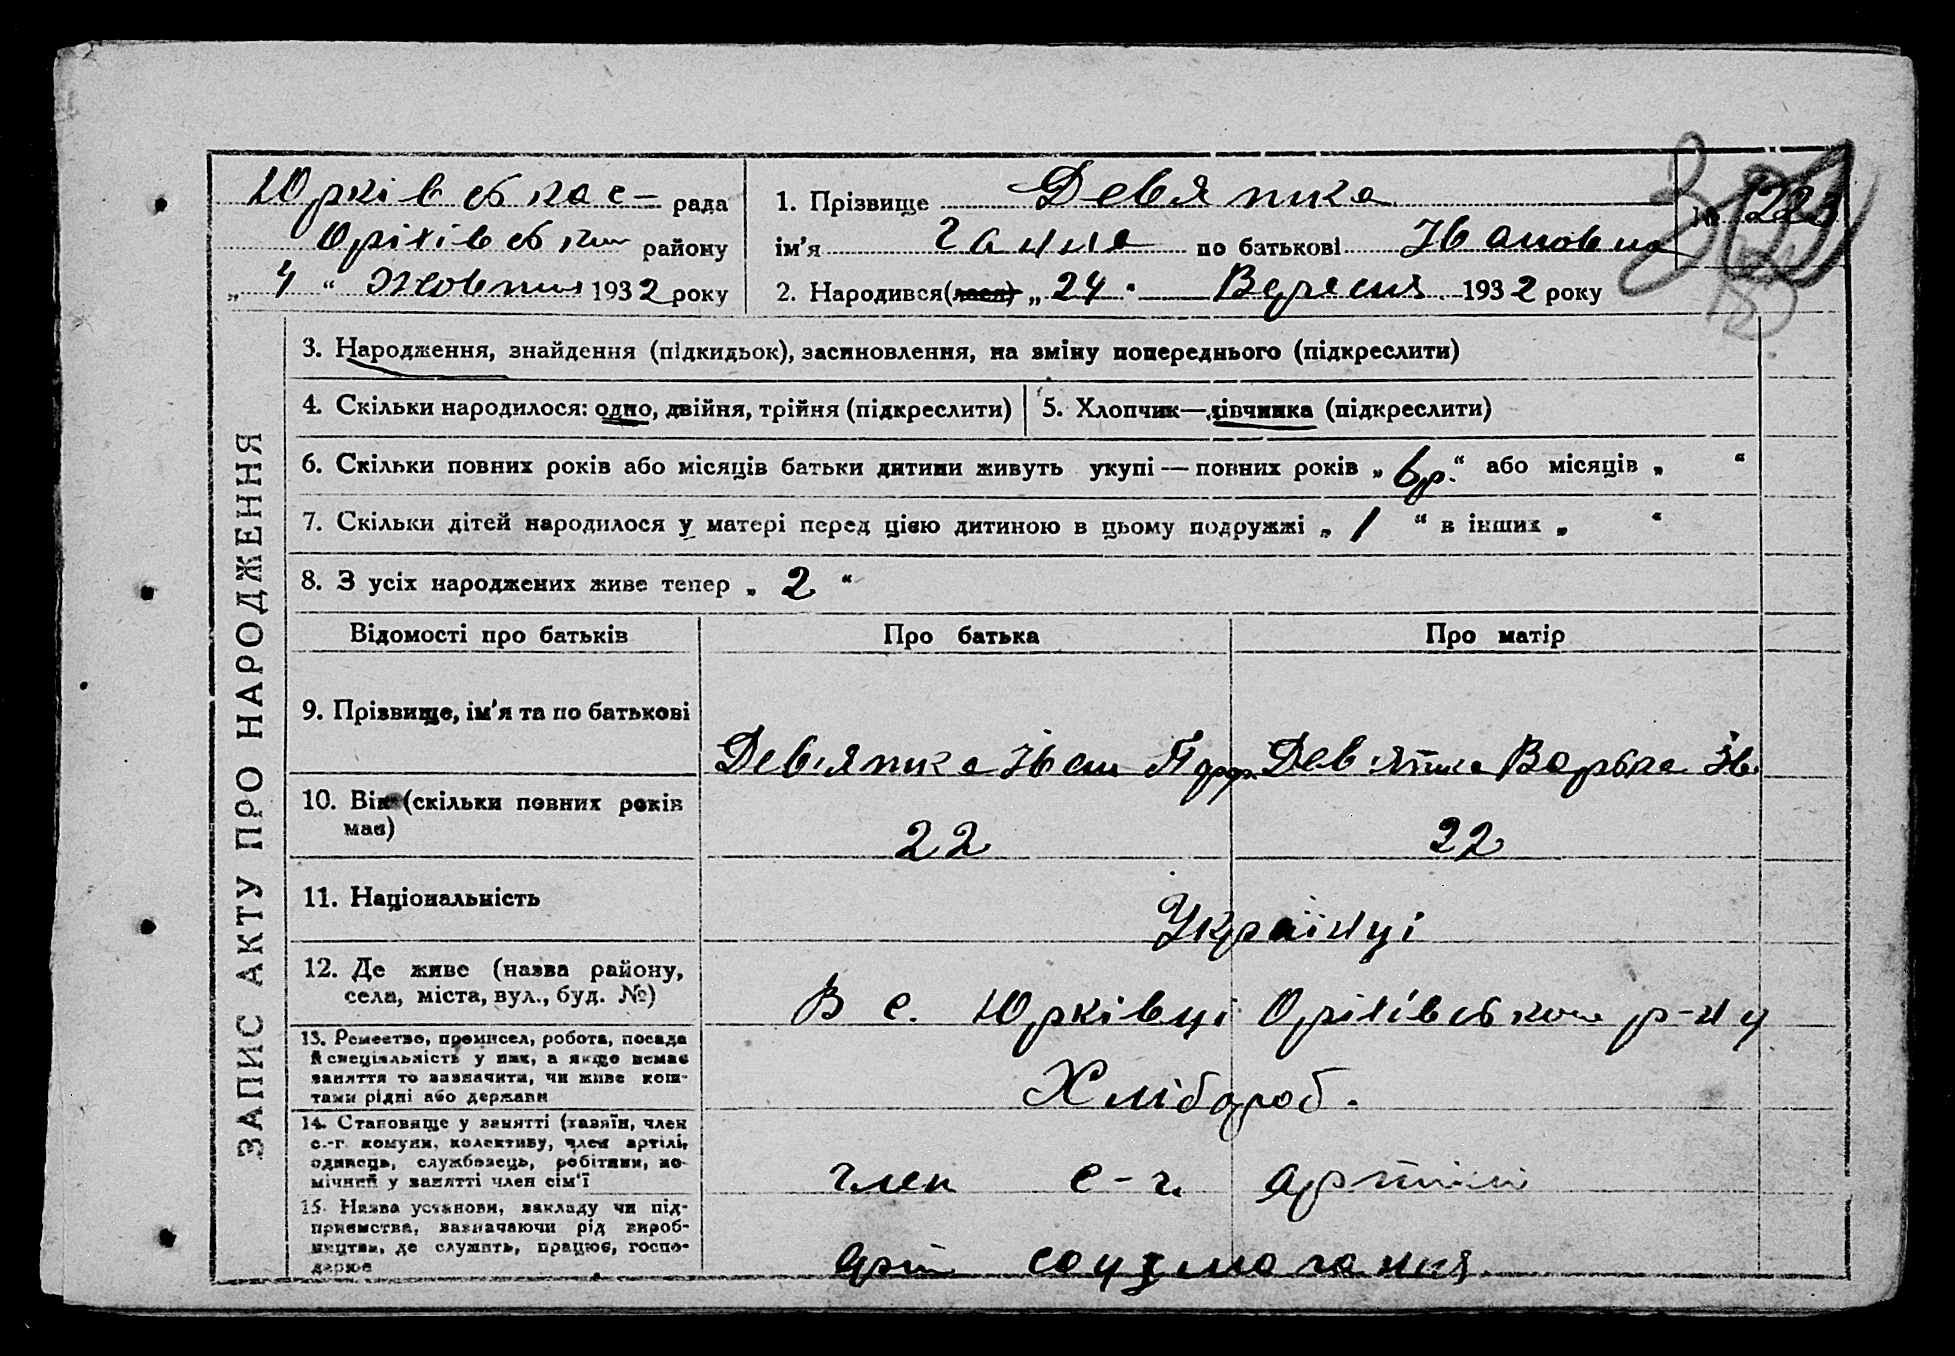 Юрківська с- рада
Оріхівського району
„ 4 “ Жовтня 1932 року
1. Прізвище Девятка
ім'я Ганна по батькові Ивановна
2. Народився(лася) „ 24 “ Вересня 1932 року
№
ЗАПИС АКТУ ПРО НАРОДЖЕННЯ
3. Народження, знайдення (підкидьок), засиновлення, на зміну попереднього (підкреслити)
4. Скільки народилося: одно, двійня, трійня (підкреслити) 5. Хлопчик—дівчинка (підкреслити)
6. Скільки повних років або місяців батьки дитини живуть укупі — повних років „ 6р. “ або місяців „ “
7. Скільки дітей народилося у матері перед цією дитиною в цьому подружжі „ 1 “ в інших „ “
8. З усіх народжених живе тепер „ 2 “
Відомості про батьків Про батька Про матір
9. Прізвище, ім'я та по батькові
Девятка Іван Девятка Варвара Ів.
10. Вік (скільки повних років
має)
22 22
11. Національність
Українці
12. Де живе (назва району,
села, міста, вул., буд. №)
В с. Юрківці Оріхівського р-ну
13. Ремество, промисел, робота, посада
й спеціяльність у них, а якщо немає
заняття то зазначити, чи живе кош-
тами рідні або держави
Хлібороб.
14. Становище у занятті (хазяїн, член
с.-г. комуни, колективу, член артілі,
одинець, службовець, робітник, по-
мічний у занятті член сім'ї
член с-г. артілі
15. Назва установи, закладу чи під-
приємства, зазначаючи рід вироб-
ництва, де служить, працює, госпо-
дарює
арт соцзмагання